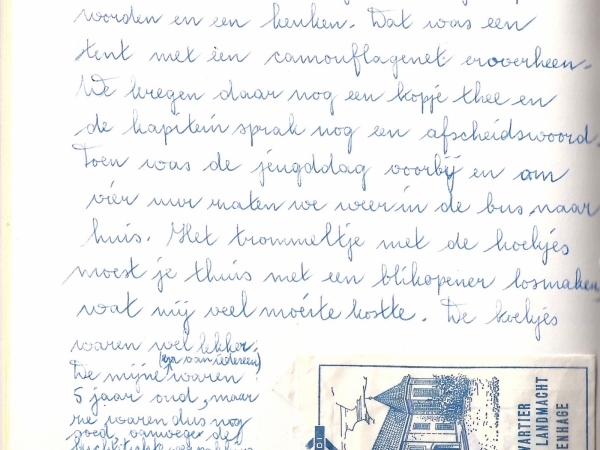 worden en een keuken. Dat was een
tent met een camouflagenet eroverheen.
We kregen daar nog een kopje thee en
de kapitein sprak nog een afscheidswoord.
Toen was de jeugddag voorbij en om
vier uur zaten we weer in de bus naar
huis. Het trommeltje met de koekjes
moest je thuis met een blikopener losmaken
wat mij veel moeite kostte. De koekjes
waren wel lekker.
De mijne (en van iedereen) waren
5 jaar oud, maar
ze waren dus nog
goed, vanwege de
VARTIER
LANDMACHT
ENHAGE